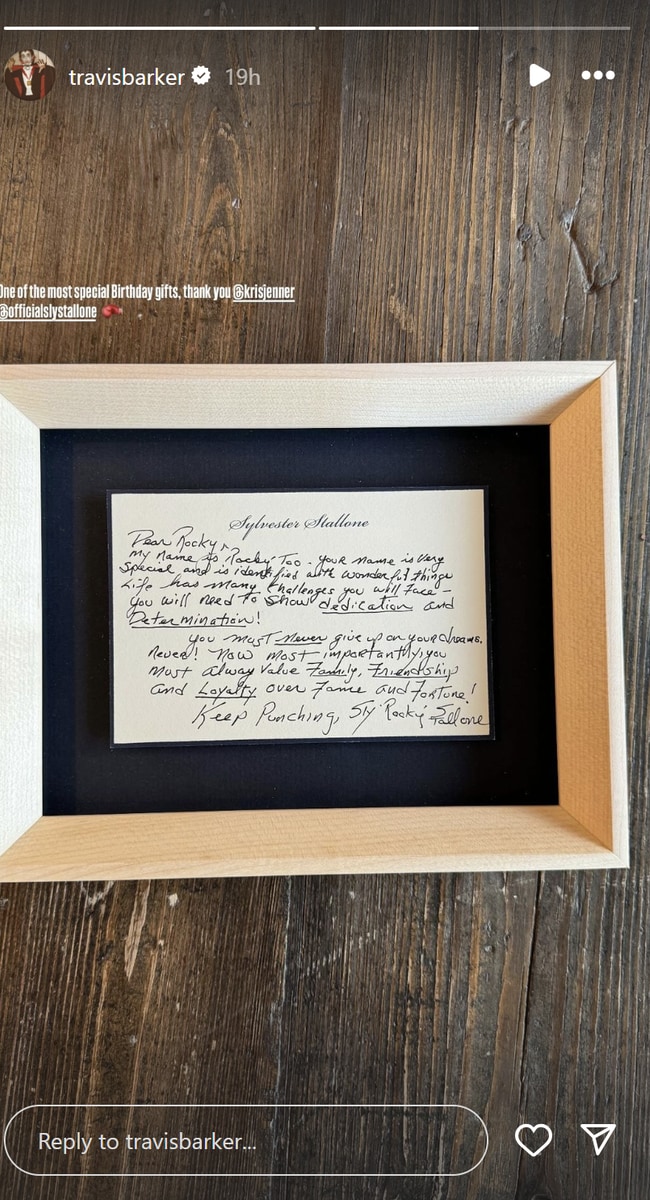 travisbarker 19h
One of the most special Birthday gifts, thank you @krisjenner
@officialslystallone
Sylvester Stallone
Dear Rocky,
my name is 'Rocky' Too. your name is very
special, and is identified with wonderful things
Life has many challenges you will face –
you will need to show dedication and
Determination!
you must never give up on your dreams.
Never! Now most importantly, you
must alway value Family, Friendship
and Loyalty over Fame and Fortune!
Keep Punching, Sly 'Rocky' Stallone
Reply to travisbarker...